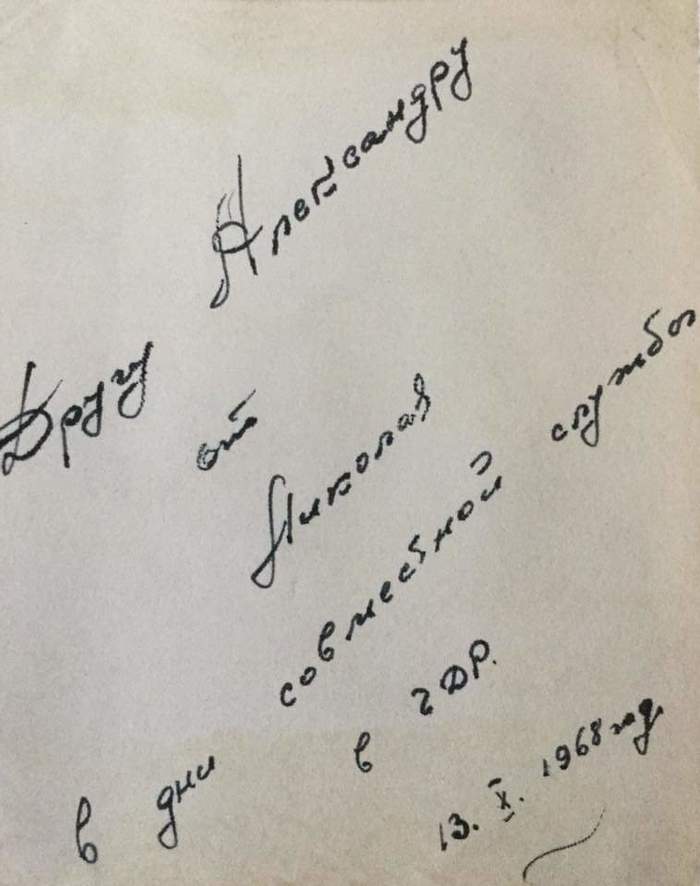 Другу Александру
от Николая
в дни совместной службы
в ГДР.
13. X. 1968 год.